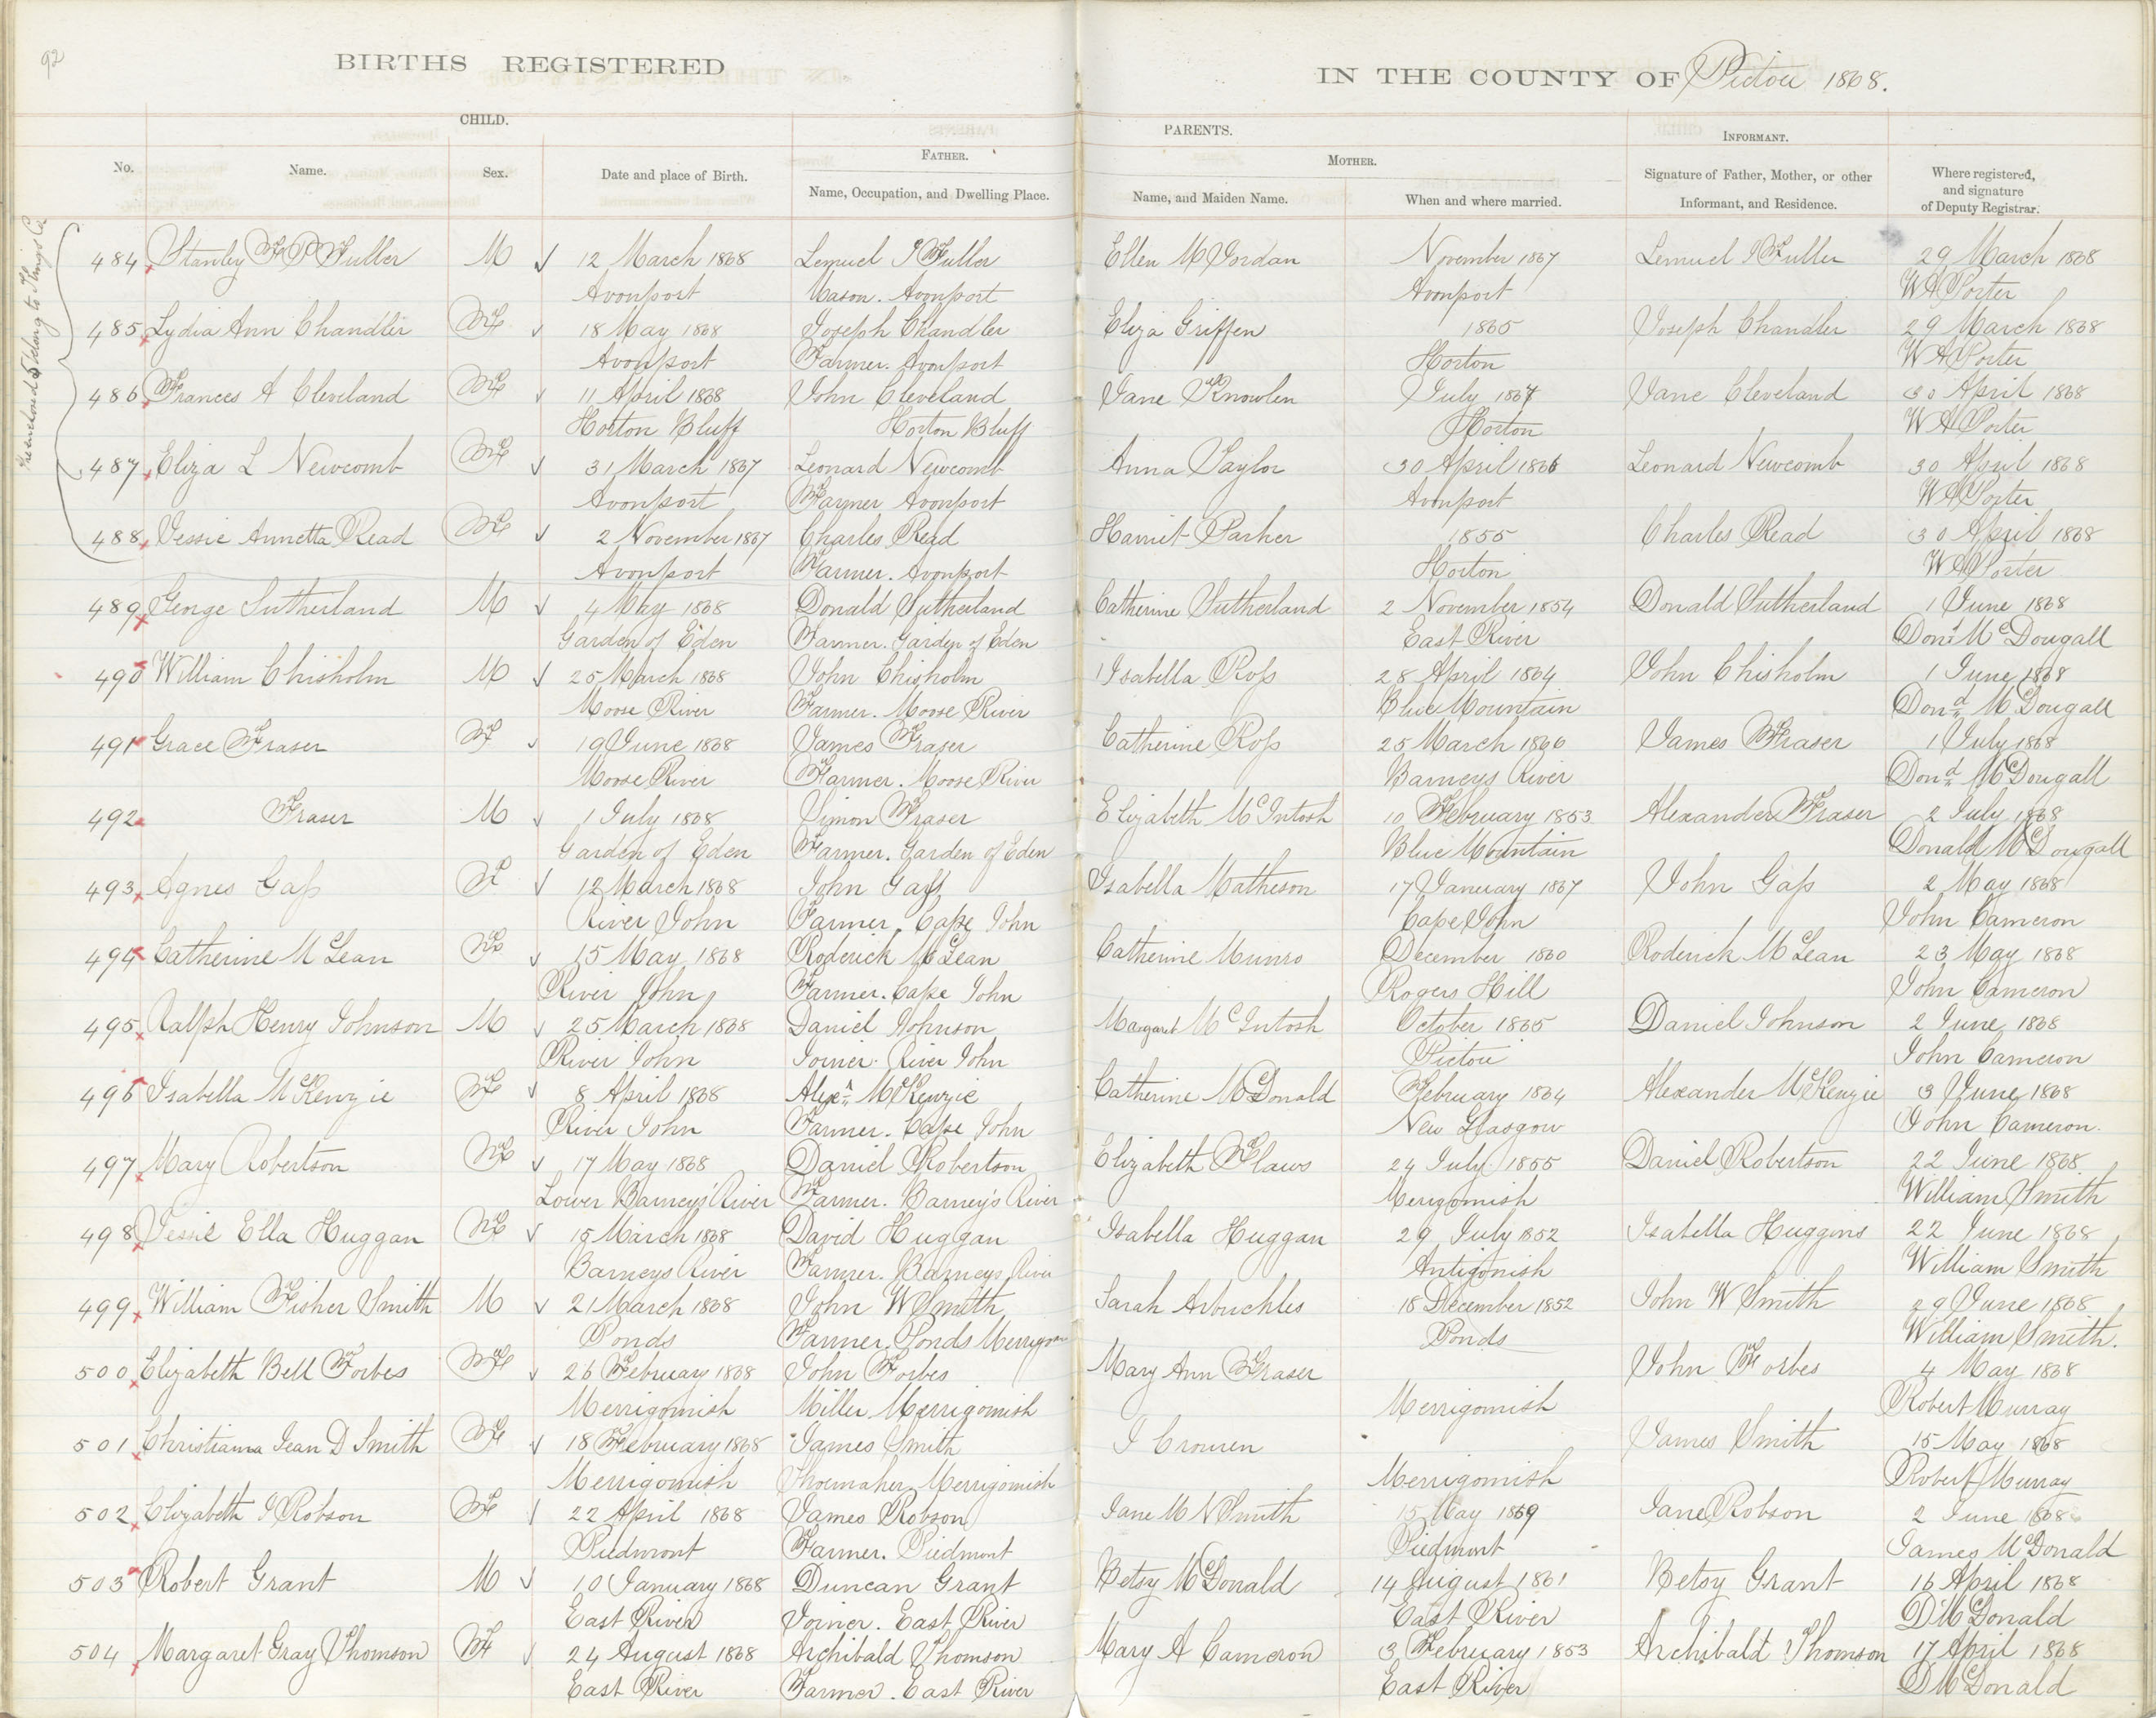 92
BIRTHS REGISTERED IN THE COUNTY OF Pictou 1868.
CHILD. PARENTS. INFORMANT.
FATHER. MOTHER.
No. Name. Sex. Date and place of Birth. Name, Occupation, and Dwelling Place. Name, and Maiden Name. When and where married. Signature of Father, Mother, or other Informant, and Residence. Where registered, and signature of Deputy Registrar.
belong to Kings Co
484 Stanley F P Fuller M 12 March 1868 Lemuel I Fuller Ellen M Jordan November 1867 Lemuel I Fuller 29 March 1868
Avonport Mason. Avonport Avonport W A Porter
485 Lydia Ann Chandler F 18 May 1868 Joseph Chandler Eliza Griffen 1865 Joseph Chandler 29 March 1868
Avonport Farmer. Avonport Horton W A Porter
486 Frances A Cleveland F 11 April 1868 John Cleveland Jane Knowlen July 1867 Jane Cleveland 30 April 1868
Horton Bluff Horton Bluff Horton W A Porter
487 Eliza L Newcomb F 31 March 1867 Leonard Newcomb Anna Taylor 30 April 1866 Leonard Newcomb 30 April 1868
Avonport Farmer Avonport Avonport W A Porter
488 Jessie Annetta Read F 2 November 1867 Charles Read Harriet Parker 1855 Charles Read 30 April 1868
Avonport Farmer. Avonport Horton W A Porter
489 George Sutherland M 4 May 1868 Donald Sutherland Catherine Sutherland 2 November 1854 Donald Sutherland 1 June 1868
Garden of Eden Farmer. Garden of Eden East River Dond McDougall
490 William Chisholm M 25 March 1868 John Chisholm Isabella Ross 28 April 1864 John Chisholm 1 June 1868
Moose River Farmer. Moose River Blue Mountain Dond McDougall
491 Grace Fraser F 19 June 1868 James Fraser Catherine Ross 25 March 1866 James Fraser 1 July 1868
Moose River Farmer. Moose River Barneys River Dond McDougall
492 Fraser M 1 July 1868 Simon Fraser Elizabeth McIntosh 10 February 1853 Alexander Fraser 2 July 1868
Garden of Eden Farmer. Garden of Eden Blue Mountain Donald McDougall
493 Agnes Gass F 12 March 1868 John Gass Isabella Matheson 17 January 1867 John Gass 2 May 1868
River John Farmer. Cape John Cape John John Cameron
494 Catherine McLean F 15 May 1868 Roderick McLean Catherine Munro December 1860 Roderick McLean 23 May 1868
River John Farmer. Cape John Rogers Hill John Cameron
495 Ralph Henry Johnson M 25 March 1868 Daniel Johnson Margaret McIntosh October 1865 Daniel Johnson 2 June 1868
River John Joiner. River John Pictou John Cameron
496 Isabella McKenzie F 8 April 1868 Alexr McKenzie Catherine McDonald February 1864 Alexander McKenzie 3 June 1868
River John Farmer. Cape John New Glasgow John Cameron.
497 Mary Robertson F 17 May 1868 Daniel Robertson Elizabeth Flaws 24 July 1855 Daniel Robertson 22 June 1868
Lower Barney's River Farmer. Barney's River Merigomish William Smith
498 Jessie Ella Huggan F 15 March 1868 David Huggan Isabella Huggan 29 July 1852 Isabella Huggins 22 June 1868
Barneys River Farmer. Barneys River Antigonish William Smith
499 William Fisher Smith M 21 March 1868 John W Smith Sarah Arbuckles 18 December 1852 John W Smith 29 June 1868
Ponds Farmer. Ponds Ponds William Smith.
500 Elizabeth Bell Forbes F 26 February 1868 John Forbes Mary Ann Fraser John Forbes 4 May 1868
Merrigomish Miller Merrigomish Merrigomish Robert Murray
501 Christianna Jean D Smith F 18 February 1868 James Smith J Crowen James Smith 15 May 1868
Merrigomish Shoemaker Merrigomish Merrigomish Robert Murray
502 Elizabeth J Robson F 22 April 1868 James Robson Jane M N Smith 15 May 1869 Jane Robson 2 June 1868
Piedmont Farmer. Piedmont Piedmont James McDonald
503 Robert Grant M 10 January 1868 Duncan Grant Betsy McDonald 14 August 1861 Betsy Grant 16 April 1868
East River Joiner. East River East River D McDonald
504 Margaret Gray Thomson F 24 August 1868 Archibald Thomson Mary A Cameron 3 February 1853 Archibald Thomson 17 April 1868
East River Farmer. East River East River D McDonald